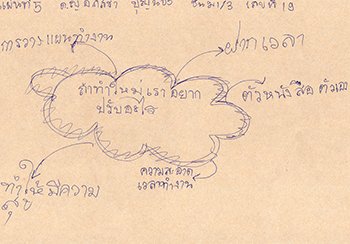 แผนที่ 5 ด.ญ. ชั้น ม.1/3 เลขที่ 19
การวางแผนทำงาน
ฝากเวลา
ถ้าทำใหม่เราอยาก
ปรับอะไร
ตัวหนังสือ
ความสะอาด
เวลาทำงาน
ทำให้มีความ
สุข